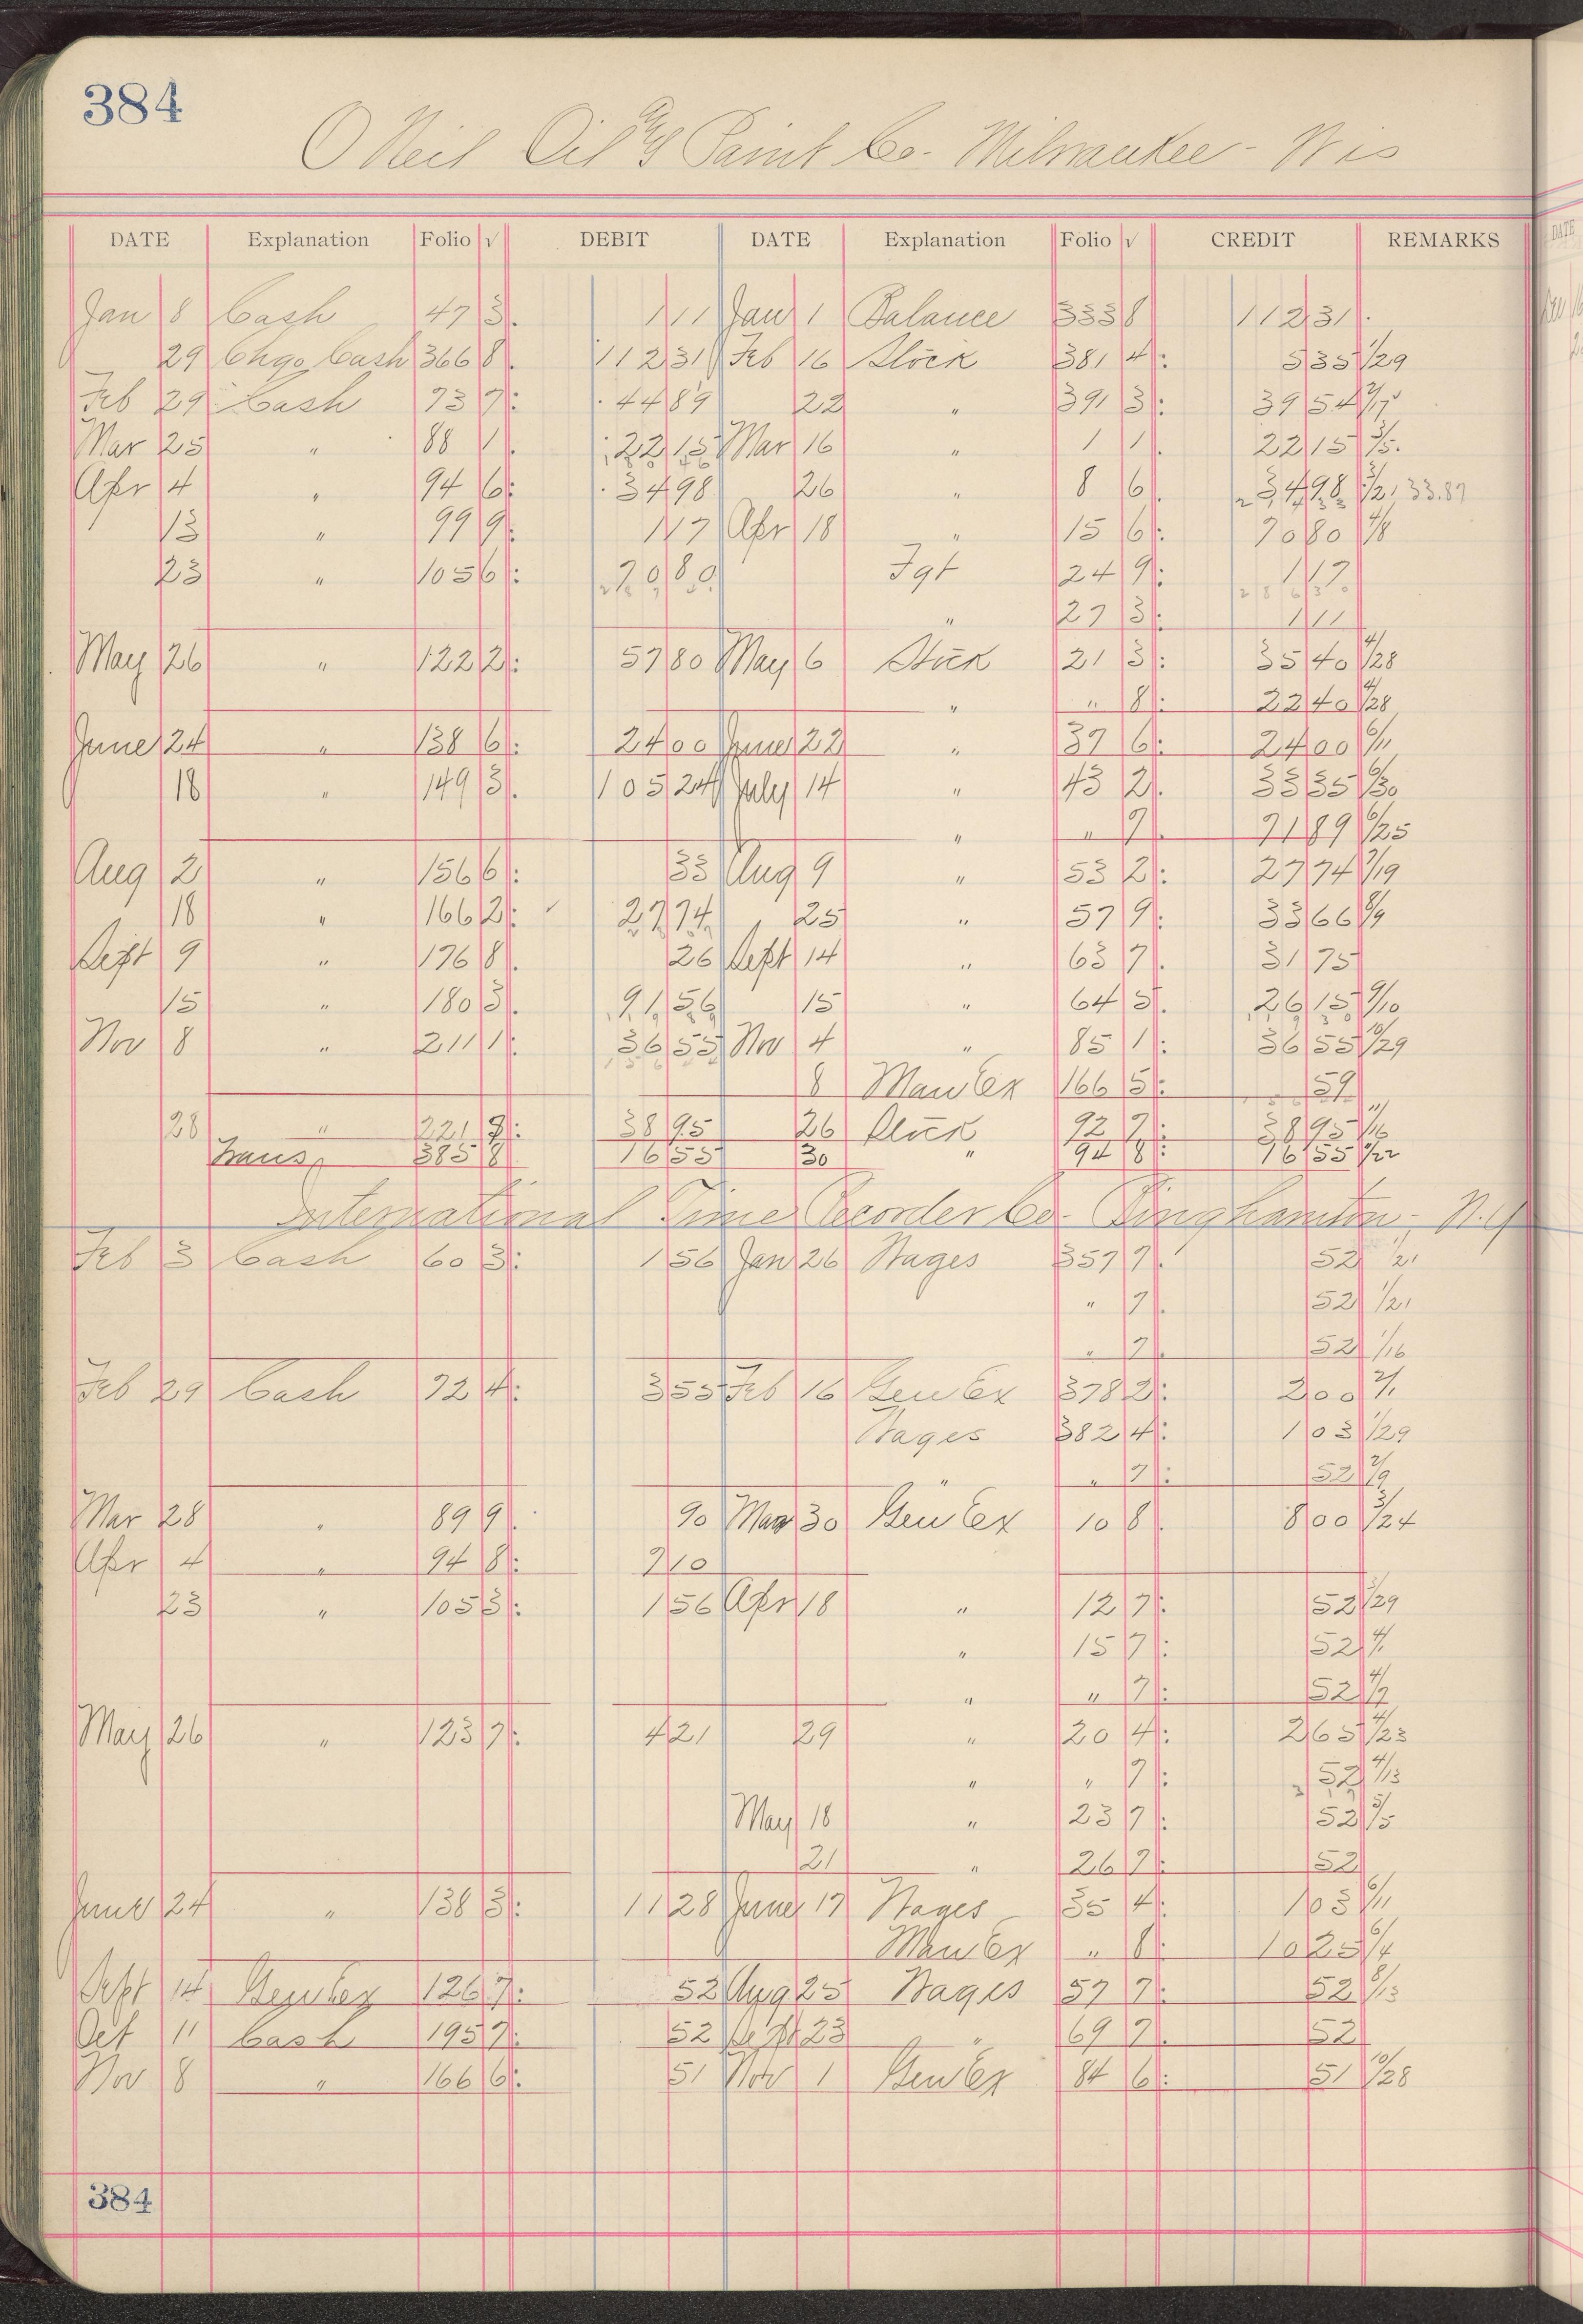 384
O Neil Oil & Paint Co. Milwaukee - Wis
DATE Explanation Folio √ DEBIT DATE Explanation Folio √ CREDIT REMARKS
Jan 8 Cash 47 3 1 11 Jan 1 Balance 333 8 112 31
29 Chgo Cash 366 8 112 31 Feb 16 Stock 381 4 5 35 1/29
Feb 29 Cash 73 7 44 89 22 " 391 3 39 54 2/17
Mar 25 " 88 1 22 15 Mar 16 " 1 1 22 15 3/5
Apr 4 " 94 6 34 98 26 " 8 6 34 98 3/21 33.87
13 " 99 9 1 17 Apr 18 " 15 6 70 80 4/8
23 " 105 6 70 80 Fgt 24 9 1 17
" 27 3 1 11
May 26 " 122 2 57 80 May 6 Stock 21 3 35 40 4/28
" " 8 22 40 4/28
June 24 " 138 6 24 00 June 22 " 37 6 24 00 6/11
18 " 149 3 105 24 July 14 " 43 2 33 35 6/30
" " 7 71 89 6/25
Aug 2 " 156 6 33 Aug 9 " 53 2 27 74 7/19
18 " 166 2 27 74 25 " 57 9 33 66 8/9
Sept 9 " 176 8 26 Sept 14 " 63 7 31 75
15 " 180 3 91 56 15 " 64 5 26 15 9/10
Nov 8 " 211 1 36 55 Nov 4 " 85 1 36 55 10/29
8 Man Ex 166 5 59
28 " 221 7 38 95 26 Stock 92 7 38 95 11/16
Trans 385 8 16 55 30 " 94 8 16 55 11/22
International Time Recorder Co - Binghamton - N.Y
Feb 3 Cash 60 3 1 56 Jan 26 Wages 357 7 52 1/21
" 7 52 1/21
" 7 52 1/16
Feb 29 Cash 72 4 3 55 Feb 16 Gen Ex 378 2 2 00 2/1
Wages 382 4 1 03 1/29
" " 7 52 2/9
Mar 28 " 89 9 90 Mar 30 Gen Ex 10 8 8 00 3/24
Apr 4 " 94 8 7 10
23 " 105 3 1 56 Apr 18 " 12 7 52 3/29
" 15 7 52 4/1
" " 7 52 4/7
May 26 " 123 7 4 21 29 " 20 4 2 65 4/23
" " 7 52 4/13
May 18 " 23 7 52 5/5
21 " 26 7 52
June 24 " 138 3 11 28 June 17 Wages 35 4 1 03 6/11
Man Ex " 8 10 25 6/4
Sept 14 Gen Ex 126 7 52 Aug 25 Wages 57 7 52 8/13
Oct 11 Cash 195 7 52 Sept 23 " 69 7 52
Nov 8 " 166 6 51 Nov 1 Gen Ex 84 6 51 10/28
384